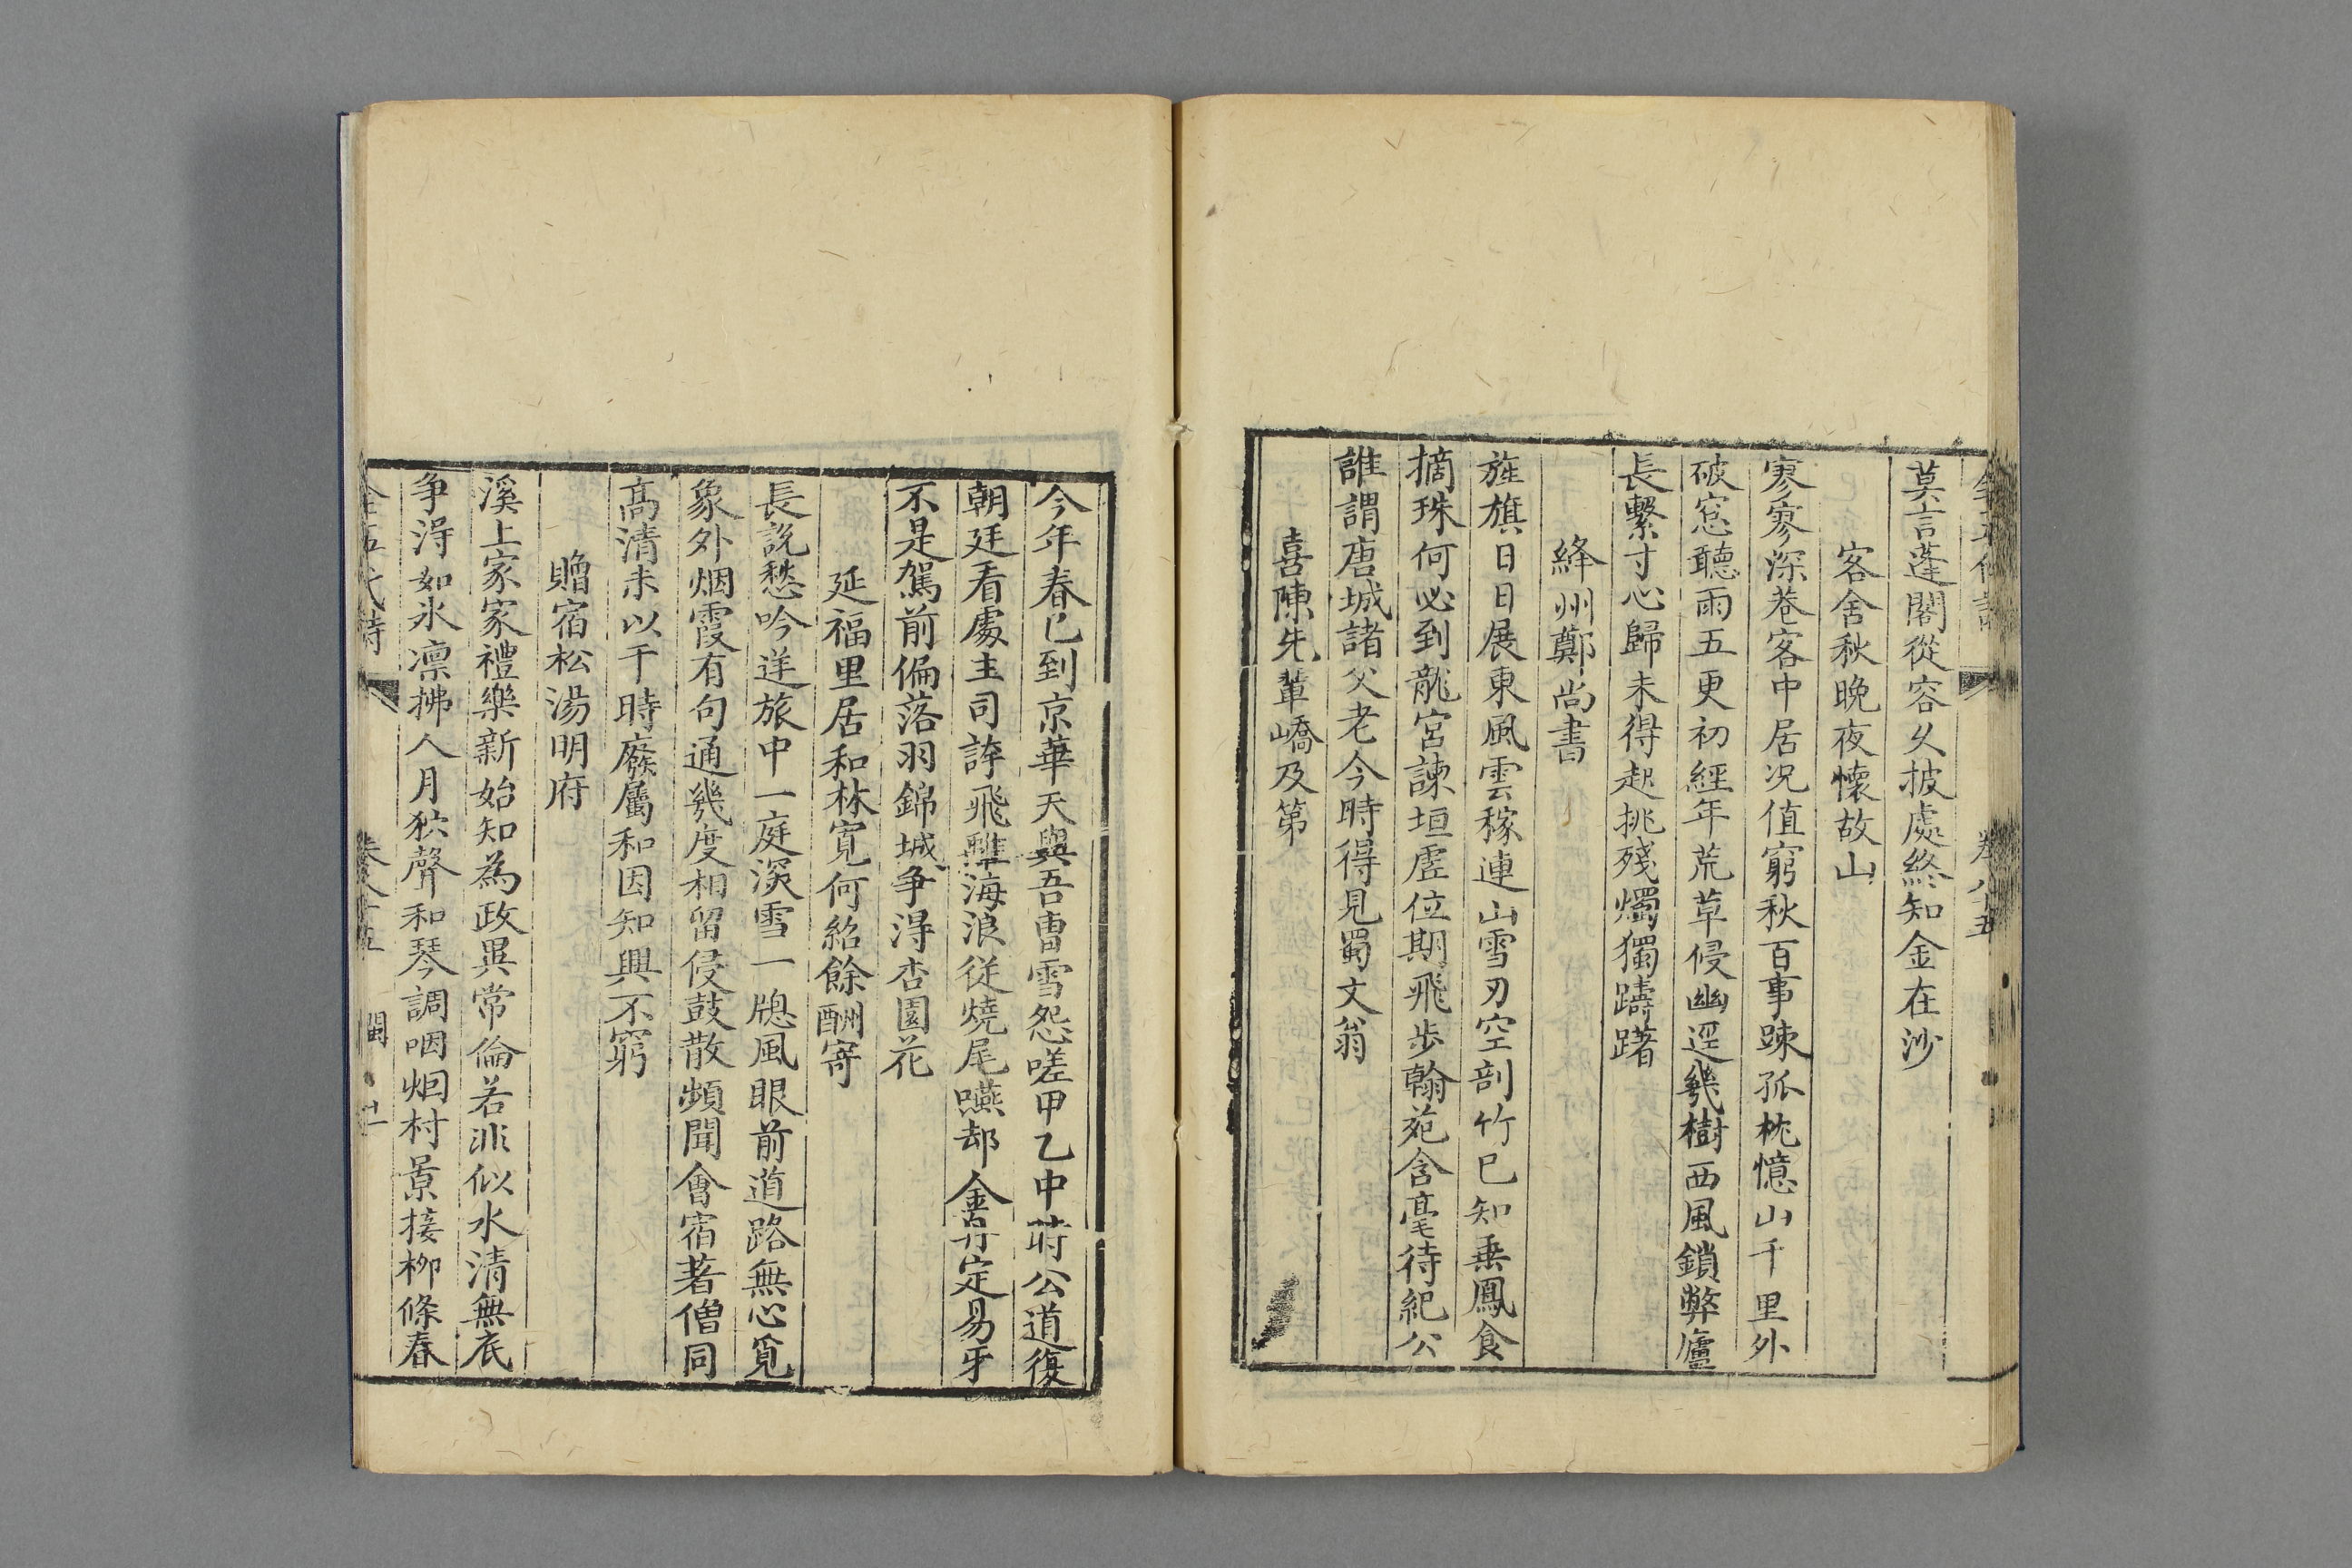 莫言蓬閣從容久披處終知金在沙
客舍秋晚夜懷故山
寥寥深巷客中居况值窮秋百事踈孤枕憶山千里外
破窓聽雨五更初經年荒草侵幽逕幾樹西風鎖弊廬
長繫寸心歸未得起挑殘燭獨躊躇
絳州鄭尚書
旌旗日日展東風雲稼連山雪刃空剖竹巳知乗鳳食
摘珠何必到龍宮諫垣虛位期飛步翰苑含毫待紀公
誰謂唐城諸父老今時得見蜀文翁
喜陳先輩嶠及第
今年春巳到京華天與吾曹雪怨嗟甲乙中時公道復
朝廷看處主司誇飛離海浪從燒尾嚥却金丹定易牙
不是駕前偏落羽錦城争淂杏園花
延福里居和林寛何紹餘酬寄
長說愁吟逆旅中一庭深雪一牕風眼前道路無心覓
象外烟霞有句通幾度相留侵鼓散頻聞會宿著僧同
髙清未以干時廢屬和因知興不窮
贈宿松湯明府
溪上家家禮樂新始知為政異常倫若非似水清無底
争淂如氷凛拂人月狖聲和琴調咽烟村景接柳條春
卷八十五
閩